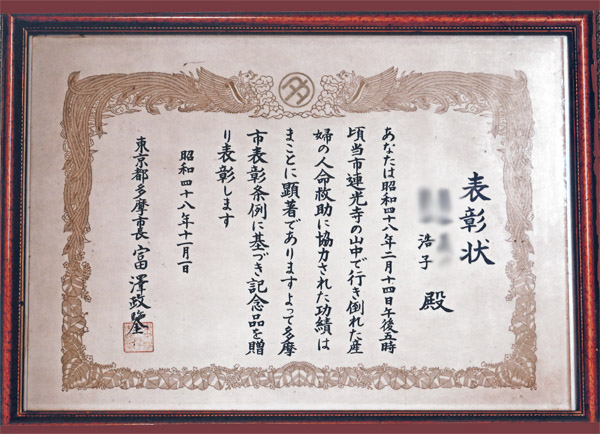 表彰状
浩子 殿
あなたは昭和四十八年二月十四日午後五時
頃当市連光寺の山中で行き倒れた産
婦の人命救助に協力された功績は
まことに顕著でありますよって多摩
市表彰条例に基づき記念品を贈
り表彰します
昭和四十八年十一月一日
東京都多摩市長 富澤政鑒